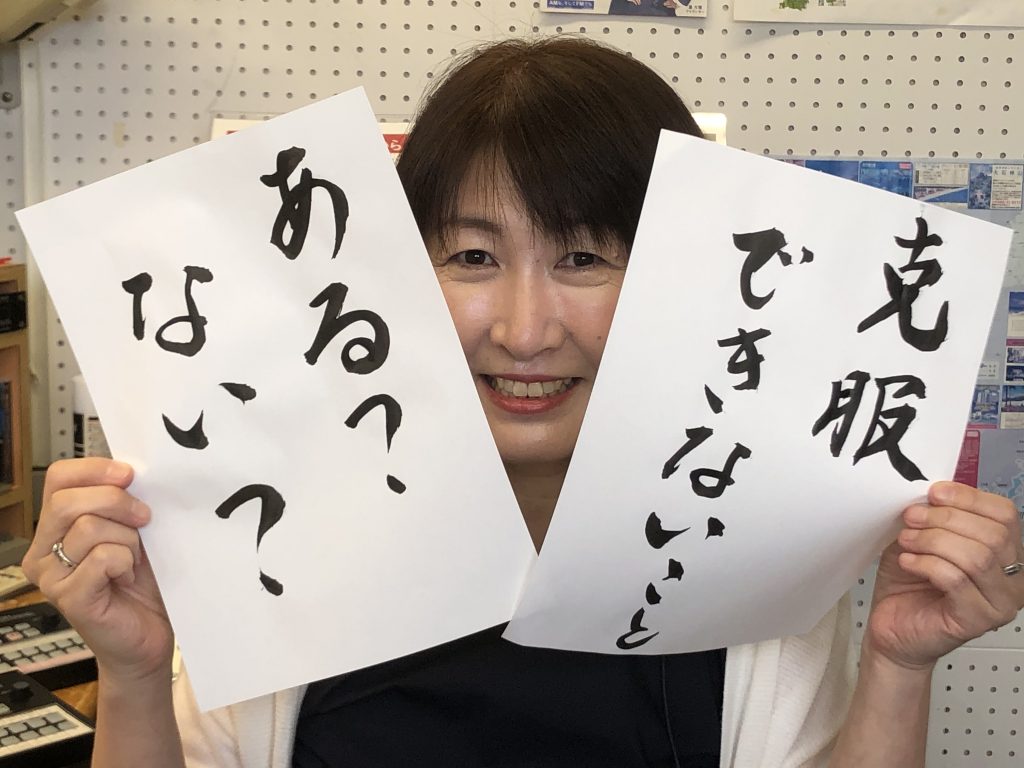 克服
できないこと
ある?
ない?